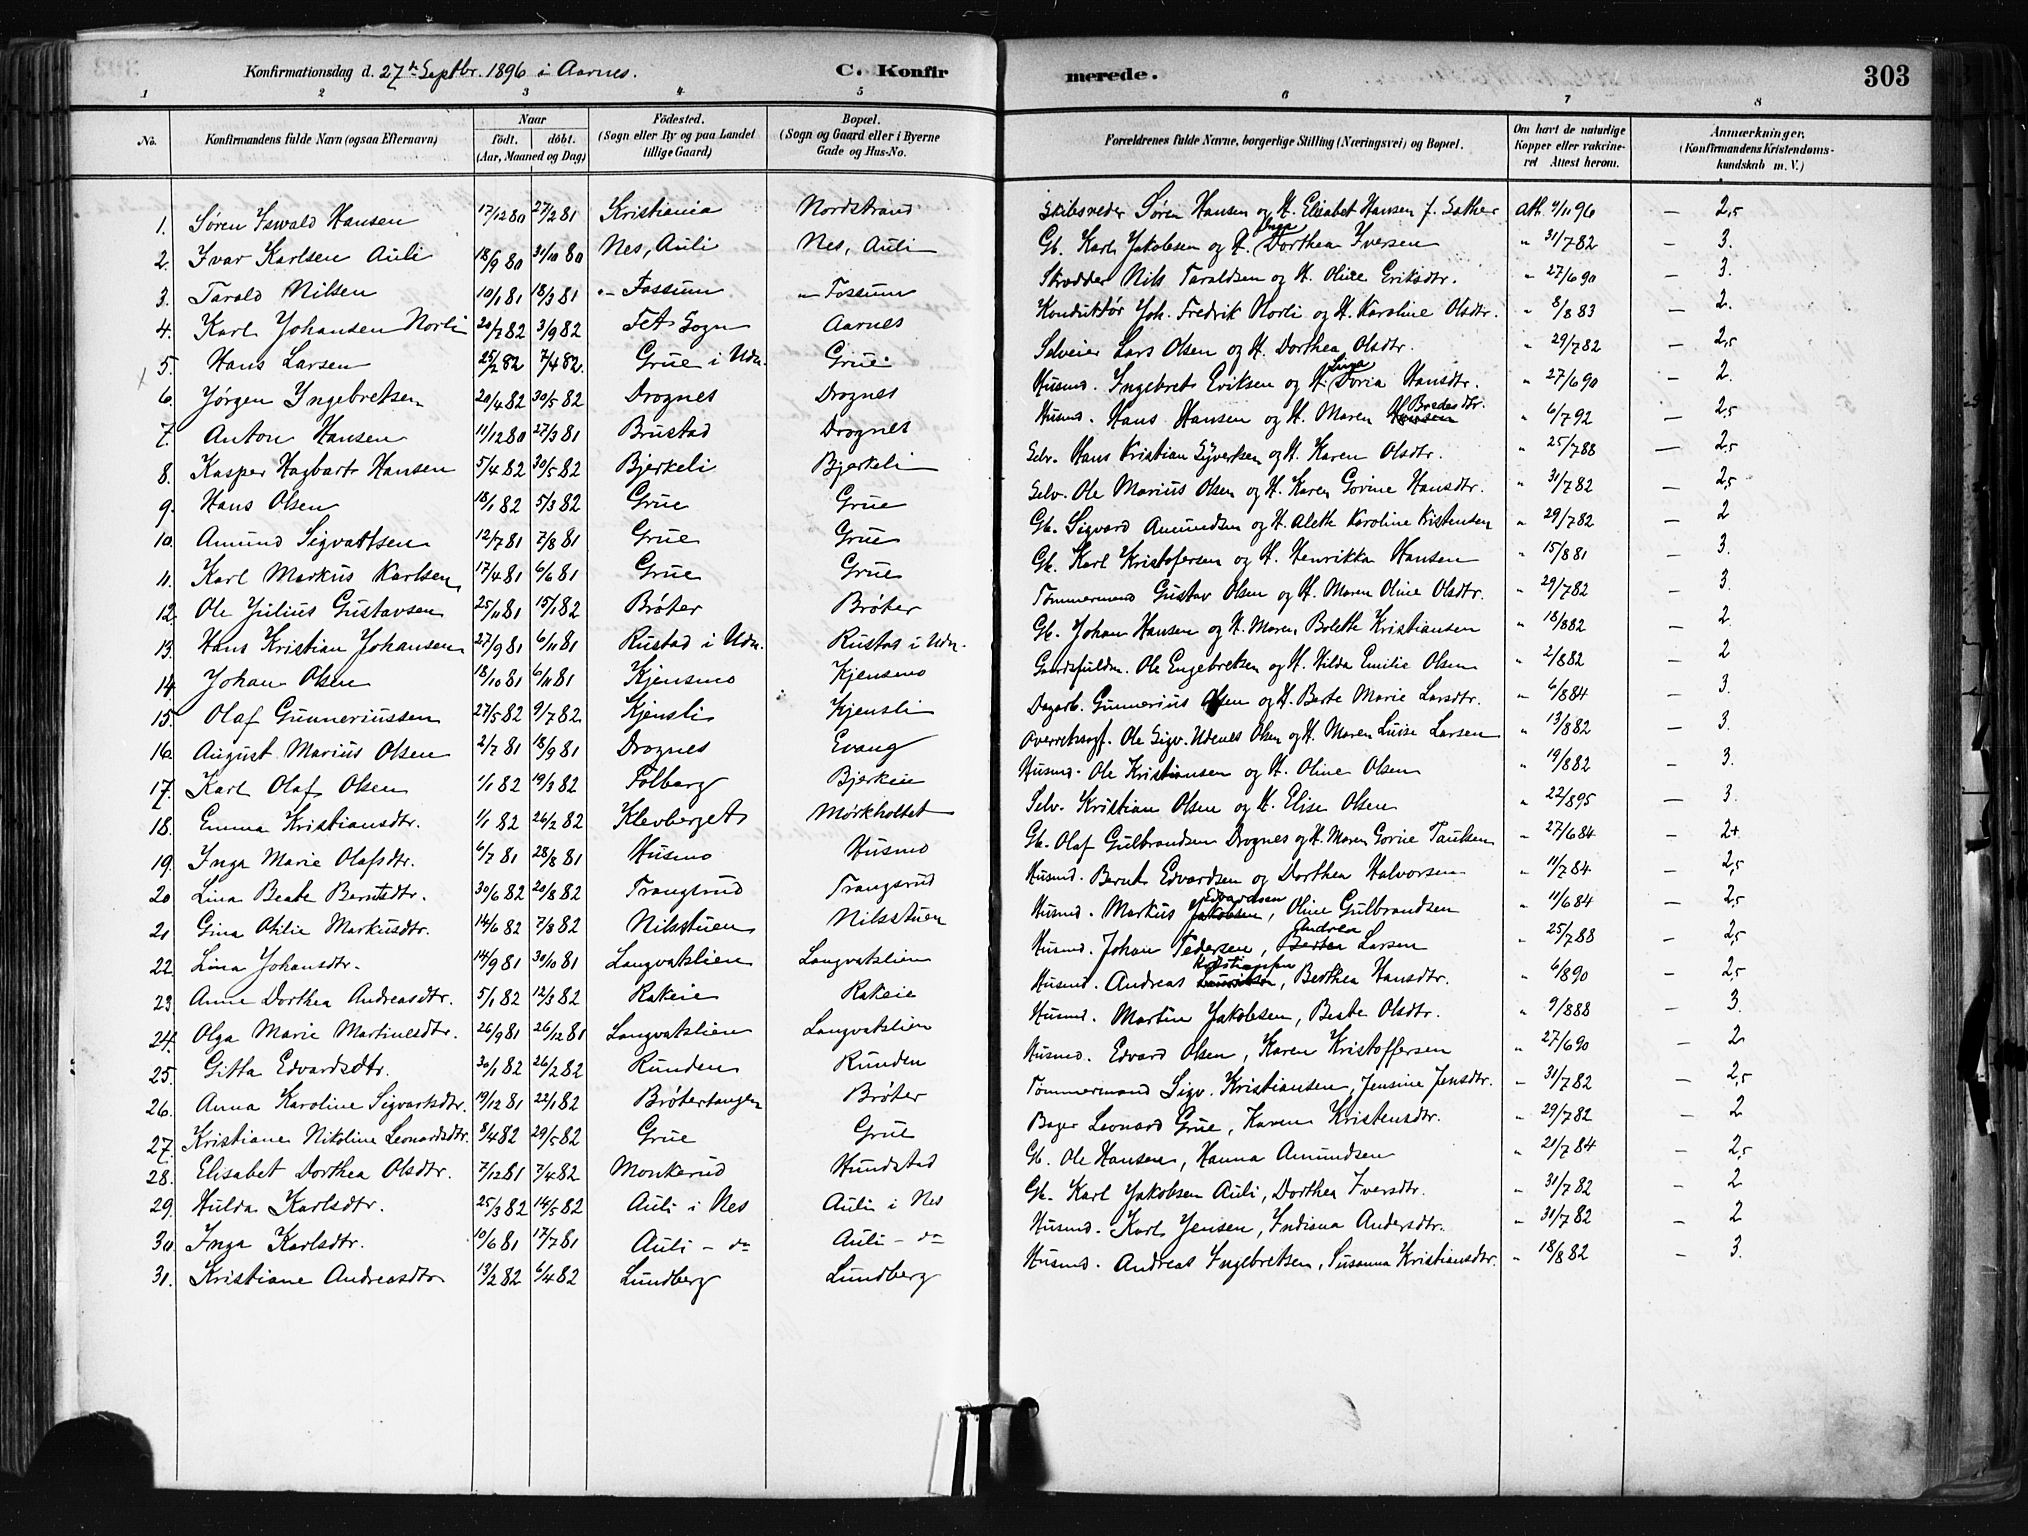 Konfirmationsdag d. 27de Septbr. 1896 i Aarnes. C. Konfirmerede. 303
1 2 3 4 5 6 7 8
No. Konfirmandens fulde Navn (ogsaa Efternavn) Naar født. døbt. (Aar, Maaned og Dag) Fødested. (Sogn eller By og paa Landet tillige Gaard) Bopæl. (Sogn og Gaard eller i Byerne Gade og Hus-No. Forældrenes fulde Navne, borgerlige Stilling (Næringsvei) og Bopæl. Om havt de naturlige Kopper eller vakcineret Attest herom. Anmærkninger. (Konfirmandens Kristendomskundskab m. V.)
1. Søren Iswald Hansen 17/12 80 27/2 81 Kristiania Nordstrand Skibsreder Søren Hansen og H. Elisabet Hansen f. Sæther Att. 4/11 96 — 2,5
2. Ivar Karlsen Auli 18/9 80 31/10 80 Nes, Auli Nes, Auli Gb. Karl Jakobsen og H. Inga Dorthea Iversen " 31/7 82 — 3.
3. Tarald Nilsen 10/1 81 18/3 81 " Fossum " Fossum Skrædder Nils Taraldsen og H. Oline Eriksdtr. " 27/6 90 — 3.
4. Karl Johansen Norli 20/7 82 3/9 82 Fet Sogn Aarnes Konduktør Joh. Fredrik Norli og H. Karoline Olsdtr. " 8/8 83 — 2.
5. Hans Larsen 25/2 82 7/4 82 Grue i Udn. Grue Selveier Lars Olsen og H. Dorthea Olsdtr. " 29/7 82 — 2,5
6. Jørgen Ingebretsen 20/4 82 30/5 82 Drognes Drognes Husmd. Ingebret Eriksen og H. Inga Doria Hansdtr. " 27/6 90 — 2.
7. Anton Hansen 11/12 80 27/3 81 Brustad Drognes Husmd. Hans Hansen og H. Maren Bredesdtr. " 6/7 92 — 2,5
8. Kasper Hagbart Hansen 5/4 82 30/5 82 Bjerkeli Bjerkeli Selv. Hans Kristian Syvertsen og H. Karen Olsdtr. " 25/7 88 — 2,5
9. Hans Olsen 18/1 82 5/3 82 Grue Grue Selv. Ole Marius Olsen og H. Karen Govine Hansdtr. " 31/7 82 — 2,5
10. Amund Sigvattsen 12/7 81 7/8 81 Grue Grue Gb. Sigvard Amundsen og H. Alette Karoline Kristensen " 29/7 82 — 2
11. Karl Markus Karlsen 17/4 81 6/6 81 Grue Grue Gb. Karl Kristofersen og H. Henrikka Hansen " 15/8 81 — 3.
12. Ole Julius Gustavsen 25/11 81 15/1 82 Brøter Brøter Tømmermand Gustav Olsen og H. Maren Oline Olsdtr. " 29/7 82 — 3.
13. Hans Kristian Johansen 27/9 81 6/11 81 Rustad i Udn. Rustad i Udn. Gb. Johan Hansen og H. Maren Bolette Kristiansen " 18/8 82 — 2.
14. Johan Olsen 18/10 81 6/11 81 Kjensmo Kjensmo Gaardsfuldm. Ole Engebretsen og H. Hilda Emilie Olsen " 2/8 82 — 2
15. Olaf Gunneriussen 27/5 82 9/7 82 Kjensli Kjensli Dagarb. Gunnerius Olsen og H. Berte Marie Larsdtr. " 6/8 84 — 3.
16. August Marius Olsen 2/7 81 18/9 81 Drognes Evang Overretssagf. Ole Sigv. Udenes Olsen og H. Maren Luise Larsen " 13/8 82 — 3.
17. Karl Olaf Olsen 1/1 82 19/3 82 Folberg Bjerkeie Husmd. Ole Kristiansen og H. Oline Olsen " 19/8 82 — 3.
18. Emma Kristiansdtr. 1/1 82 26/2 82 Klevberget Mørkholtet Selv. Kristian Olsen og H. Elise Olsen " 22/8 95 — 3.
19. Inga Marie Olafsdtr. 6/7 81 28/8 81 Husmo Husmo Gb. Olaf Gulbrandsen Drognes og H. Maren Gorine Paulsen " 27/6 84 — 2+
20 Lina Beate Berntsdtr. 30/6 82 20/8 82 Trangsrud Trangsrud Husmd. Bernt Edvardsen og Dorthea Halvorsen " 11/7 84 — 2,5
21 Gina Otilie Markusdtr. 14/6 82 7/8 82 Nilsstuen Nilsstuen Husmd. Markus Jakobsen Edvardsen, Oline Gulbrandsen " 11/6 84 — 2,5
22 Lina Johansdtr. 14/9 81 30/10 81 Langvakslien Langvakslien Husmd. Johan Pedersen, Bertea Andrea Larsen " 25/7 88 — 2,5
23 Anne Dorthea Andreasdtr. 5/1 82 12/3 82 Rakeie Rakeie Husmd. Andreas Kristiansen, Berthea Hansdtr. " 6/8 90 — 2,5
24. Olga Marie Martinesdtr. 26/9 81 26/12 81 Langvakslien Langvakslien Husmd. Martin Jakobsen, Beate Olsdtr. " 9/8 88 — 3.
25. Gitta Edvardsdtr. 30/1 82 26/2 82 Runden Runden Husmd. Edvard Olsen, Karen Kristoffersen " 27/6 90 — 2
26. Anna Karoline Sigvartsdtr. 19/12 81 22/1 82 Brøtertangen Brøter Tømmermand Sigv. Kristiansen, Jensine Jensdtr. " 31/7 82 — 2,5
27. Kristiane Nikoline Leonardsdtr. 8/4 82 29/5 82 Grue Grue Bager Leonard Grue, Karen Kristensdtr. " 29/7 82 — 2
28. Elisabet Dorthea Olsdtr. 7/12 81 7/4 82 Monkerud Hundstad Gb. Ole Hansen, Hanna Amundsen " 21/7 84 — 2,5
29. Hulda Karlsdtr. 25/3 82 14/5 82 Auli i Nes Auli i Nes Gb. Karl Jakobsen Auli, Dorthea Iversdtr. " 31/7 82 — 2
30. Inga Karlsdtr. 10/6 81 17/7 81 Auli - do Auli - do Husmd. Karl Jensen, Indiana Andersdtr. " 31/7 82 — 2
31. Kristiane Andreasdtr 13/2 82 6/4 82 Lundberg Lundberg Husmd. Andreas Ingebretsen, Susanna Kristiansdtr. " 18/8 82 — 3.